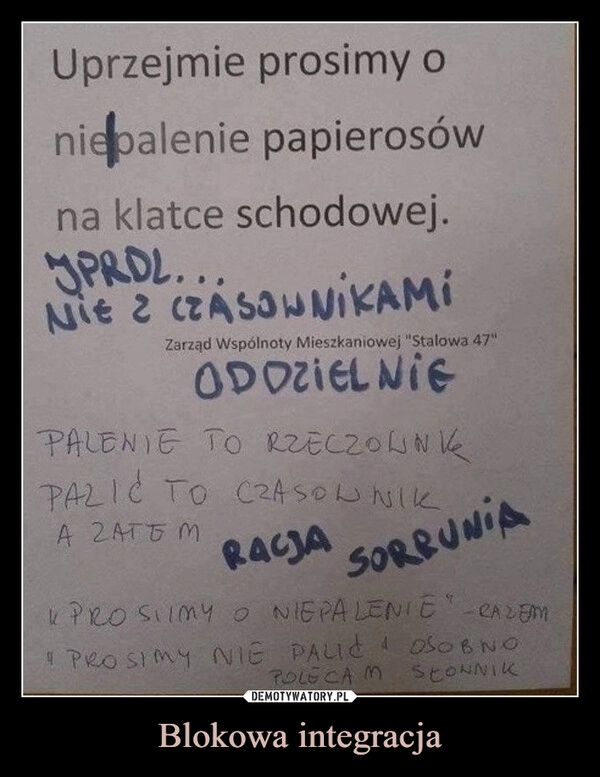 Uprzejmie prosimy o
niepalenie papierosów
na klatce schodowej.
JPRDL...
NIE Z CZASOWNIKAMI
Zarząd Wspólnoty Mieszkaniowej "Stalowa 47"
ODDZIELNIE
PALENIE TO RZECZOWNIK
PALIĆ TO CZASOWNIK
A ZATEM
RACJA SORRUNIA
"PROSIIMY O NIEPALENIE" - RAZEM
"PROSIMY NIE PALIĆ" OSOBNO
POLECAM SŁOWNIK
DEMOTYWATORY.PL
Blokowa integracja